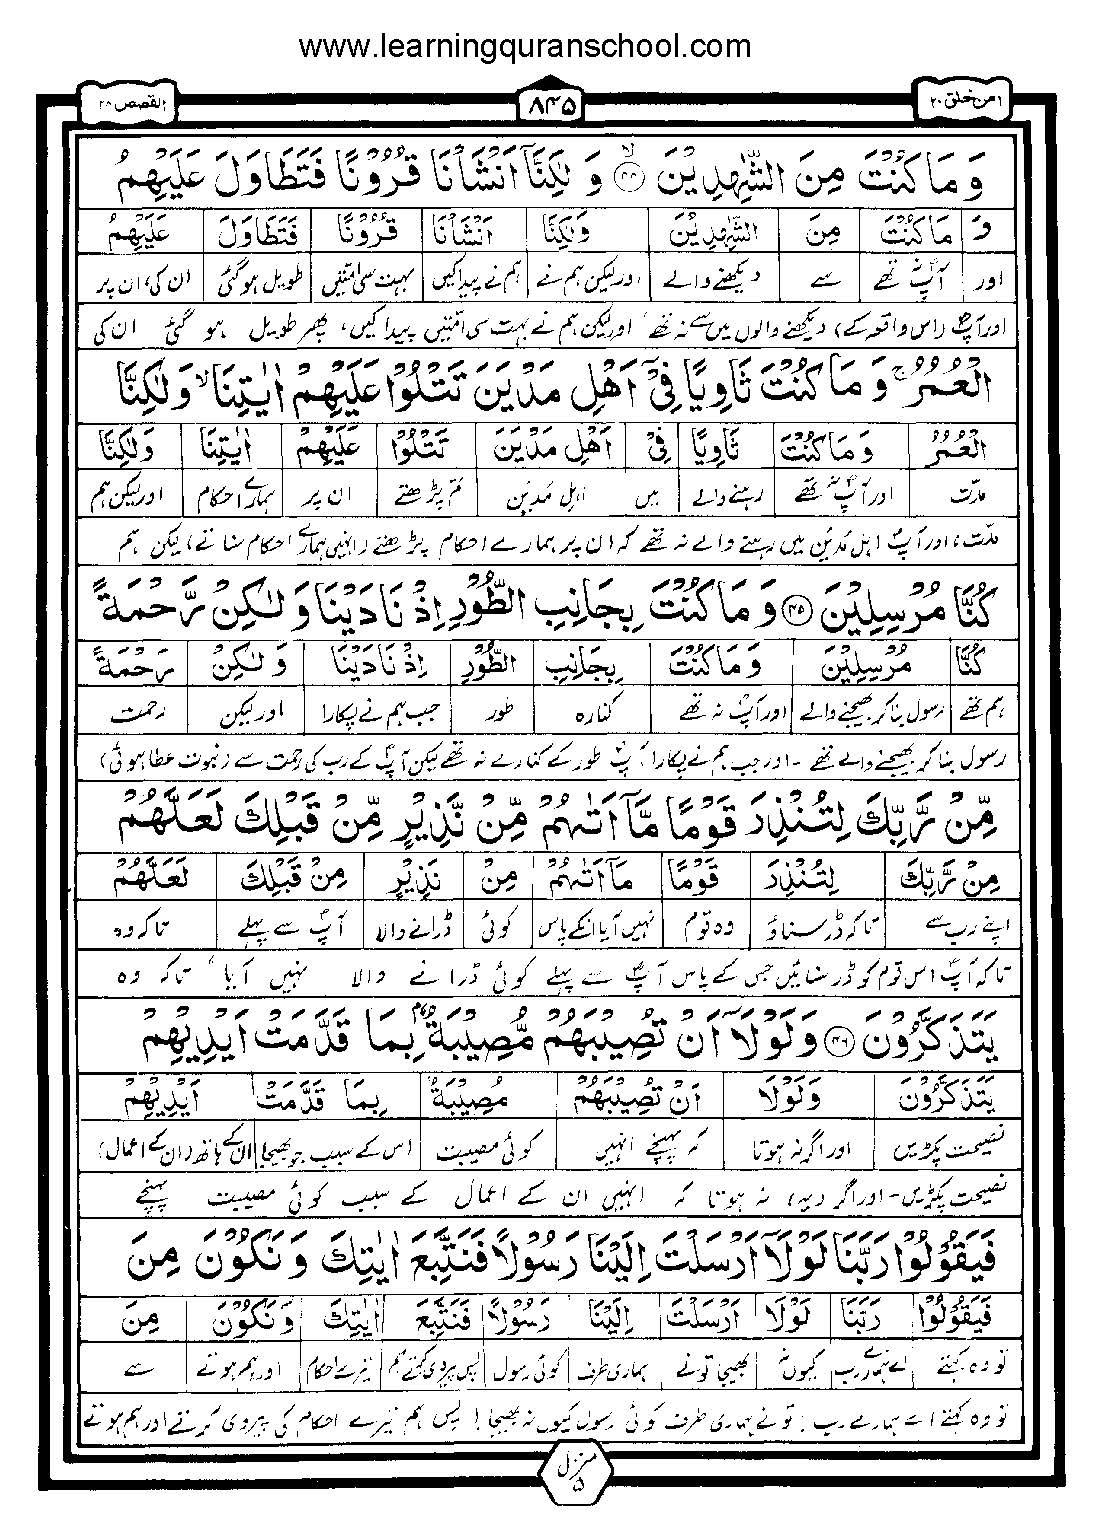 www.learningquranschool.com
امن خلق ۲۰
۸۴۵
القصص ۲۸
وَمَا كُنْتَ مِنَ الشّٰهِدِيْنَ ۙ‏﴿۴۴﴾ وَلٰكِنَّاۤ اَنْشَاْنَا قُرُوْنًا فَتَطَاوَلَ عَلَيْهِمُ
وَ مَا كُنْتَ مِنَ الشّٰهِدِيْنَ وَلٰكِنَّا اَنْشَاْنَا قُرُوْنًا فَتَطَاوَلَ عَلَيْهِمُ
اور آپؐ نہ تھے سے دیکھنے والے اور لیکن ہم نے ہم نے پیدا کیں بہت سی امتیں طویل ہو گئی ان کی، ان پر
اور آپؐ (اس واقعہ کے) دیکھنے والوں میں سے نہ تھے، اور لیکن ہم نے بہت سی امتیں پیدا کیں، پھر طویل ہو گئی ان کی
الْعُمُرُ ۚ وَمَا كُنْتَ ثَاوِيًا فِيْۤ اَهْلِ مَدْيَنَ تَتْلُوْا عَلَيْهِمْ اٰيٰتِنَا ۙ وَلٰكِنَّا
الْعُمُرُ وَمَا كُنْتَ ثَاوِيًا فِيْ اَهْلِ مَدْيَنَ تَتْلُوْا عَلَيْهِمْ اٰيٰتِنَا وَلٰكِنَّا
مدت اور آپؐ نہ تھے رہنے والے میں اہل مدین تم پڑھتے ان پر ہمارے احکام اور لیکن ہم
مدت، اور آپؐ اہل مدین میں رہنے والے نہ تھے کہ ان پر ہمارے احکام پڑھتے (انہیں ہمارے احکام سناتے) لیکن ہم
كُنَّا مُرْسِلِيْنَ ﴿۴۵﴾ وَمَا كُنْتَ بِجَانِبِ الطُّوْرِ اِذْ نَادَيْنَا وَلٰكِنْ رَّحْمَةً
كُنَّا مُرْسِلِيْنَ وَمَا كُنْتَ بِجَانِبِ الطُّوْرِ اِذْ نَادَيْنَا وَلٰكِنْ رَحْمَةً
ہم تھے رسول بنا کر بھیجنے والے اور آپؐ نہ تھے کنارہ طور جب ہم نے پکارا اور لیکن رحمت
رسول بنا کر بھیجنے والے تھے۔ اور جب ہم نے پکارا آپؐ طور کے کنارے نہ تھے لیکن آپؐ کے رب کی رحمت سے (نبوت عطا ہوئی)
مِّنْ رَّبِّكَ لِتُنْذِرَ قَوْمًا مَّاۤ اَتٰىهُمْ مِّنْ نَّذِيْرٍ مِّنْ قَبْلِكَ لَعَلَّهُمْ
مِنْ رَّبِّكَ لِتُنْذِرَ قَوْمًا مَاۤ اَتٰىهُمْ مِنْ نَذِيْرٍ مِنْ قَبْلِكَ لَعَلَّهُمْ
اپنے رب سے تاکہ ڈر سناؤ وہ قوم نہیں آیا انکے پاس کوئی ڈرانے والا آپؐ سے پہلے تاکہ وہ
تاکہ آپؐ اس قوم کو ڈر سنائیں جس کے پاس آپؐ سے پہلے کوئی ڈرانے والا نہیں آیا، تاکہ وہ
يَتَذَكَّرُوْنَ ﴿۴۶﴾ وَلَوْلَاۤ اَنْ تُصِيْبَهُمْ مُّصِيْبَةٌۢ بِمَا قَدَّمَتْ اَيْدِيْهِمْ
يَتَذَكَّرُوْنَ وَلَوْلَا اَنْ تُصِيْبَهُمْ مُصِيْبَةٌ بِمَا قَدَّمَتْ اَيْدِيْهِمْ
نصیحت پکڑیں اور اگر نہ ہوتا کہ پہنچے انہیں کوئی مصیبت اس کے سبب جو بھیجا ان کے ہاتھ (ان کے اعمال)
نصیحت پکڑیں۔ اور اگر (یہ) نہ ہوتا کہ انہیں ان کے اعمال کے سبب کوئی مصیبت پہنچے
فَيَقُوْلُوْا رَبَّنَا لَوْلَاۤ اَرْسَلْتَ اِلَيْنَا رَسُوْلًا فَنَتَّبِعَ اٰيٰتِكَ وَنَكُوْنَ مِنَ
فَيَقُوْلُوْا رَبَّنَا لَوْلَا اَرْسَلْتَ اِلَيْنَا رَسُوْلًا فَنَتَّبِعَ اٰيٰتِكَ وَنَكُوْنَ مِنَ
تو وہ کہتے اے ہمارے رب کیوں نہ بھیجا تونے ہماری طرف کوئی رسول پس پیروی کرتے ہم تیرے احکام اور ہم ہوتے سے
تو وہ کہتے اے ہمارے رب! تو نے ہماری طرف کوئی رسول کیوں نہ بھیجا! پس ہم تیرے احکام کی پیروی کرتے اور ہم ہوتے
منزل ۵